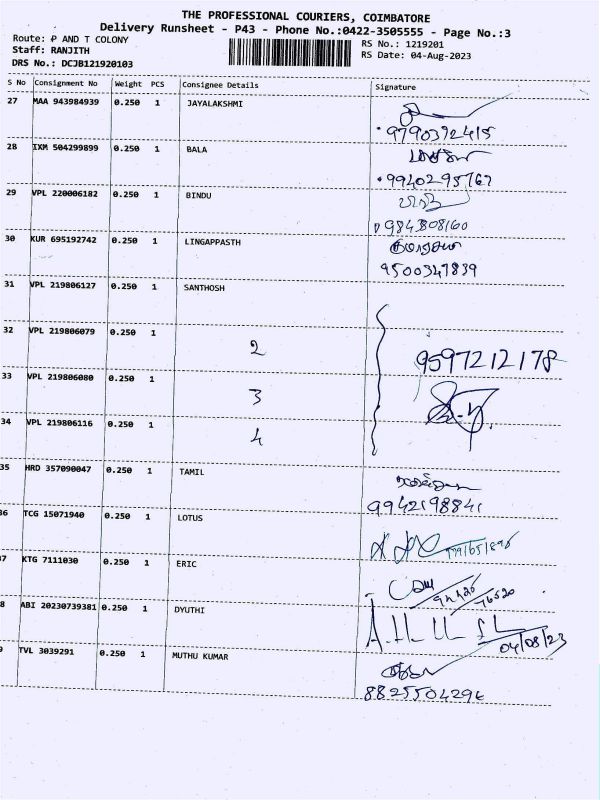 THE PROFESSIONAL COURIERS, COIMBATORE
Delivery Runsheet - P43 - Phone No.:0422-3505555 - Page No.:3
Route: P AND T COLONY
RS No.: 1219201
Staff: RANJITH
RS Date: 04-Aug-2023
DRS No.: DCJB121920103
S No Consignment No Weight PCS Consignee Details Signature
27 MAA 943984939 0.250 1 JAYALAKSHMI
9790392415
28 IXM 504299899 0.250 1 BALA
9940295767
29 VPL 220006182 0.250 1 BINDU
9843808160
30 KUR 695192742 0.250 1 LINGAPPASTH
9500347839
31 VPL 219806127 0.250 1 SANTHOSH
32 VPL 219806079 0.250 1 2
9597212178
33 VPL 219806080 0.250 1 3
34 VPL 219806116 0.250 1 4
35 HRD 357090047 0.250 1 TAMIL
9942198841
36 TCG 15071940 0.250 1 LOTUS
7 KTG 7111030 0.250 1 ERIC
76520
8 ABI 20230739381 0.250 1 DYUTHI
04/08/23
9 TVL 3039291 0.250 1 MUTHU KUMAR
8825504296